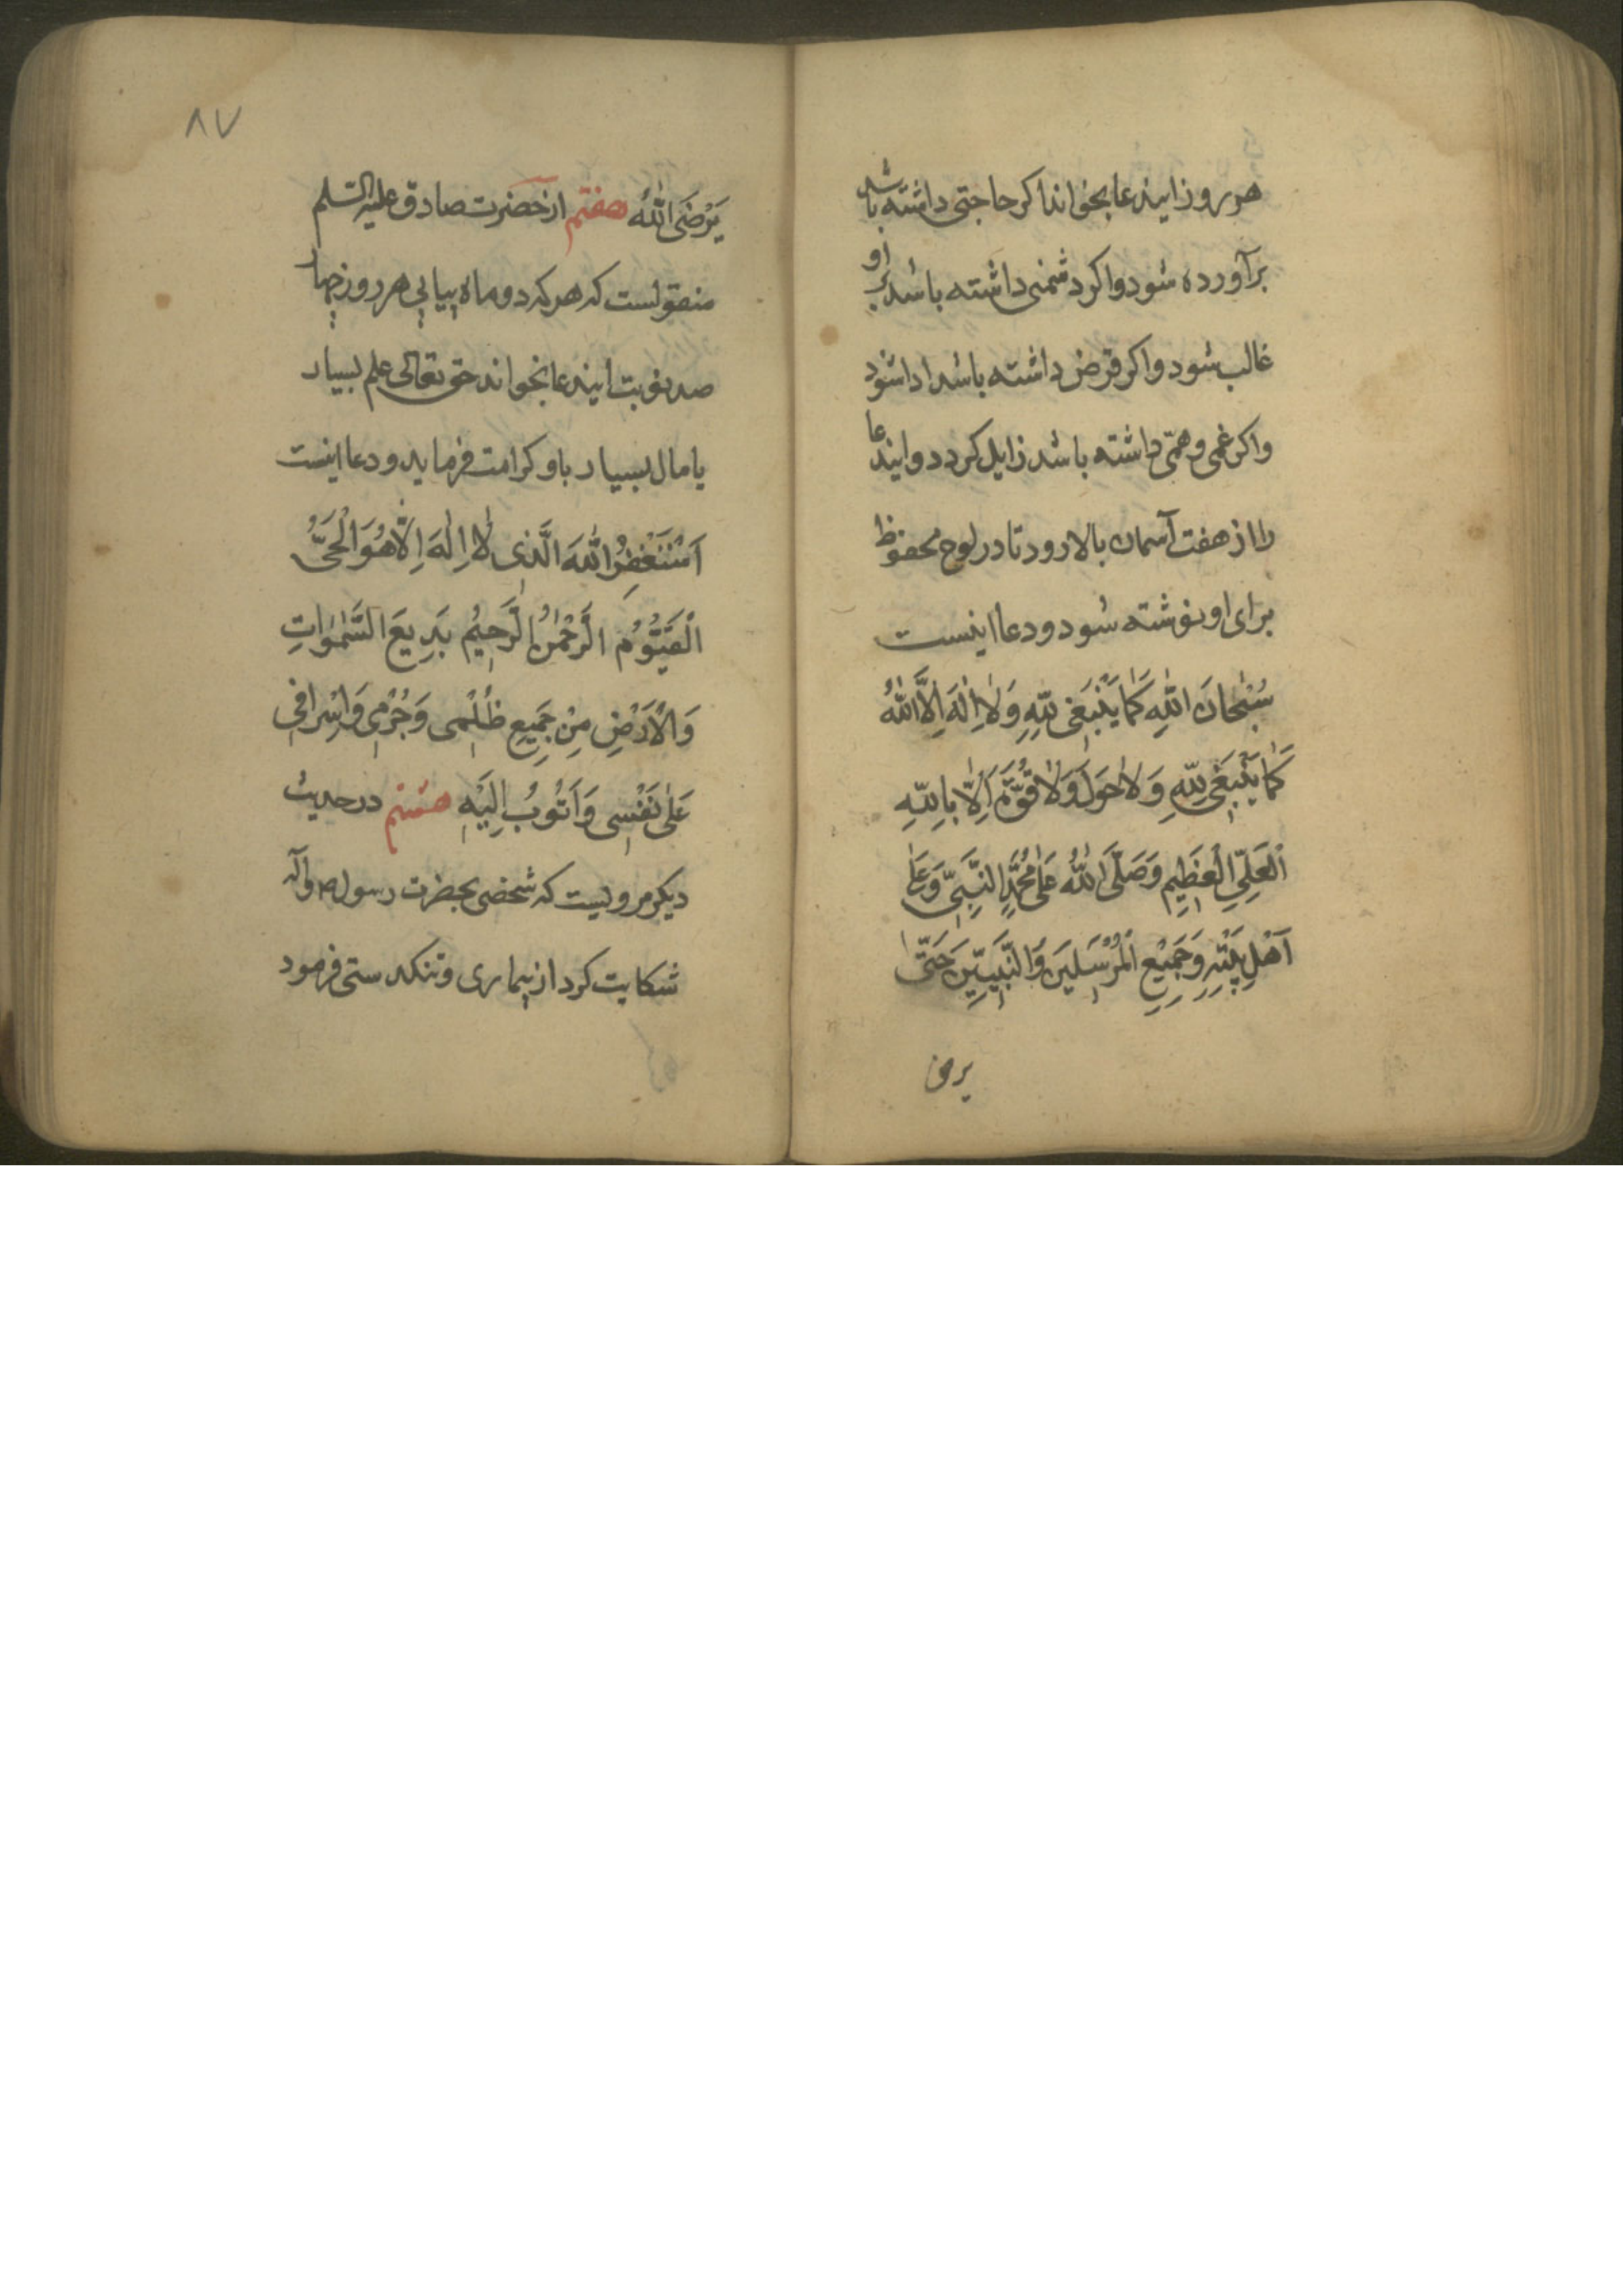 هر روز ایندعا بخواند اکر حاجتی داشته باشد
برآورده شود واکر دشمنی داشته باشد بر او
غالب شود واکر قرض داشته باشد ادا شود
واکر غمی وهمّی داشته باشد زایل کردد وایندعا
را از هفت آسمان بالا رود تا در لوح محفوظ
برای او نوشته شود ودعا اینست
سُبْحٰانَ اللّٰهِ كَمٰا يَنْبَغى لِلّٰهِ وَلٰا اِلٰهَ اِلَّا اللّٰهُ
كَمٰا يَنْبَغى لِلّٰهِ وَلٰا حَوْلَ وَلٰا قُوَّةَ اِلّٰا بِاللّٰهِ
الْعَلِىِّ الْعَظيمِ وَصَلَّى اللّٰهُ عَلىٰ مُحَمَّدٍ النَّبِىِّ وَعَلىٰ
اَهْلِ بَيْتِهِ وَجَميعِ الْمُرْسَلينَ وَالنَّبِيّينَ حَتّىٰ
یرض
۸۷
يَرْضَى اللّٰهُ هفتم از حضرت صادق علیه السلم
منقولست که هر که دو ماه پیاپی هر روز چهار
صد نوبت ایندعا بخواند حق تعالی علم بسیار
یا مال بسیار باو کرامت فرماید ودعا اینست
اَسْتَغْفِرُ اللّٰهَ الَّذى لٰا اِلٰهَ اِلّٰا هُوَ الْحَىُّ
الْقَيُّومُ الرَّحْمٰنُ الرَّحيمُ بَديعَ السَّمٰوٰاتِ
وَالْاَرْضِ مِنْ جَميعِ ظُلْمى وَجُرْمى وَاِسْرافى
عَلىٰ نَفْسى وَاَتُوبُ اِلَيْهِ هشتم در حدیث
دیکر مرویست که شخصی بحضرت رسول ص وآله
شکایت کرد از بیماری وتنکدستی فرمود